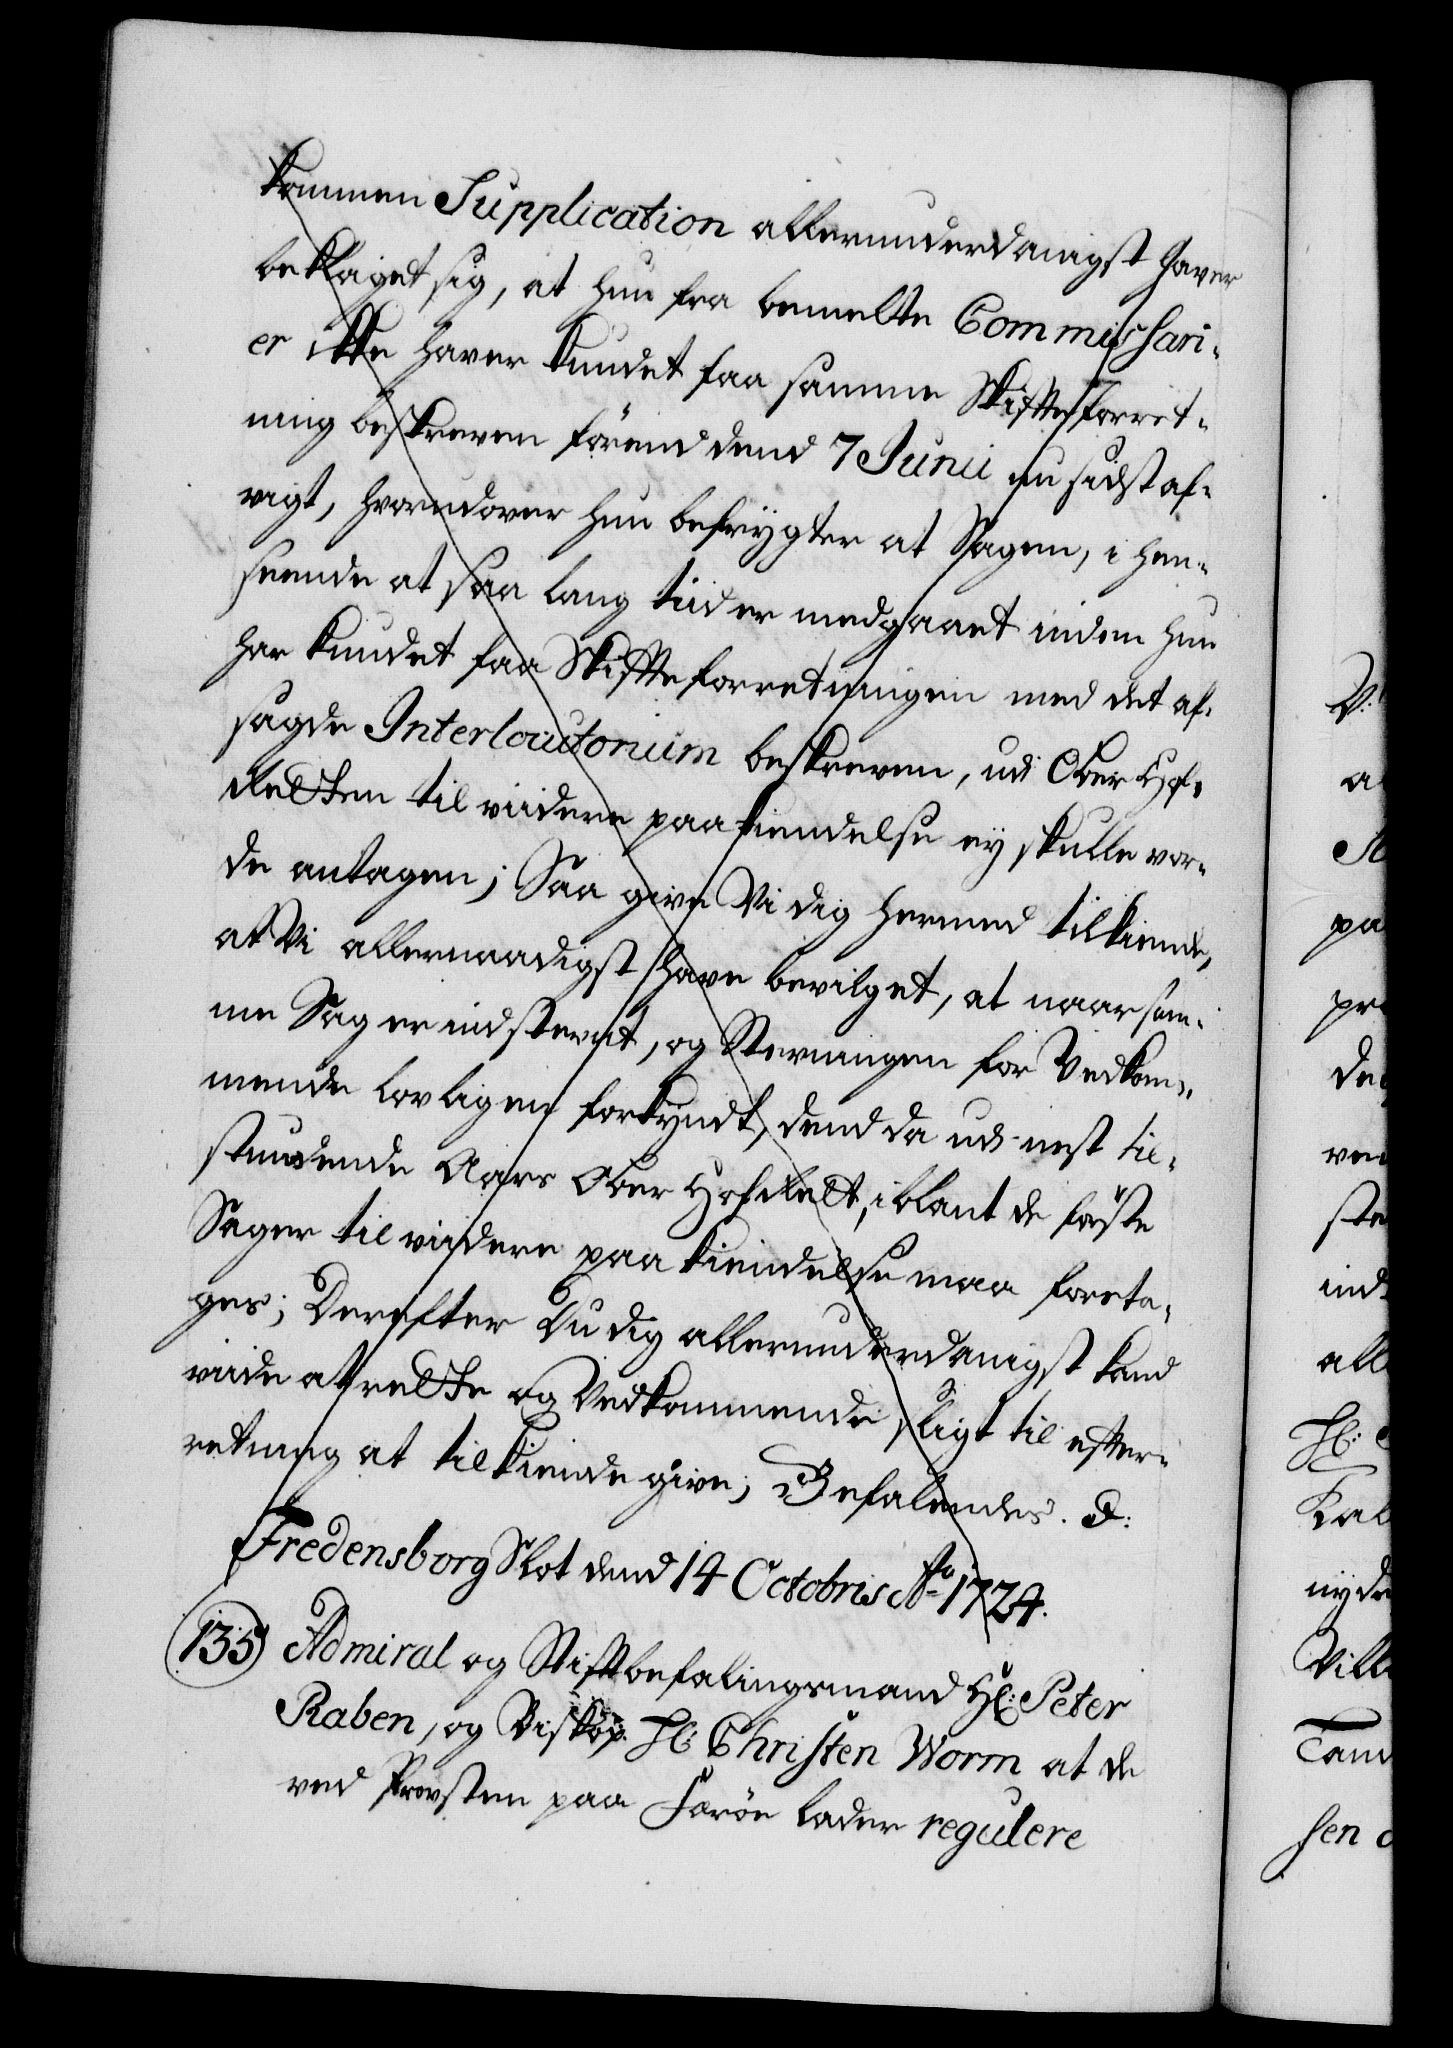 kommen Supplication allerunderdanigst haver
beklaget sig, at hun fra bemelte Commissari-
er ikke haver kundet faa samme Skifteforret-
ning beskreven förend dend 7 Junii nu sidst af-
vigt, hvorudover hun befrygter at Sagen, i hen-
seende at saa lang tiid er medgaaet inden hun
har kundet faa Skifteforretningen med det af-
sagde Interlocutorium beskreven, udi Ober Hof-
Retten til viidere paakiendelse ey skulle vor-
de antagen; Saa give Vi dig hermed tilkiende,
at Vi allernaadigst have bevilget, at naar sam-
me Sag er indstevnt, og Stevningen for Vedkom-
mende lovligen forkyndt, dend da udi nest til-
stundende Aars Ober Hofrett, iblant de förste
Sager til viidere paakiendelse maa foreta-
ges; Derefter Du dig allerunderdanigst kand
viide at rette og Vedkommende sligt til efter-
retning at tilkiende give; Befalendes. D:
Fredensborg Slot dend 14 Octobris Ao 1724.
135) Admiral og Stiftbefalingsmand Hl: Peter
Raben, og Biskop. Hl: Christen Worm at de
ved Provsten paa Færöe lader regulere